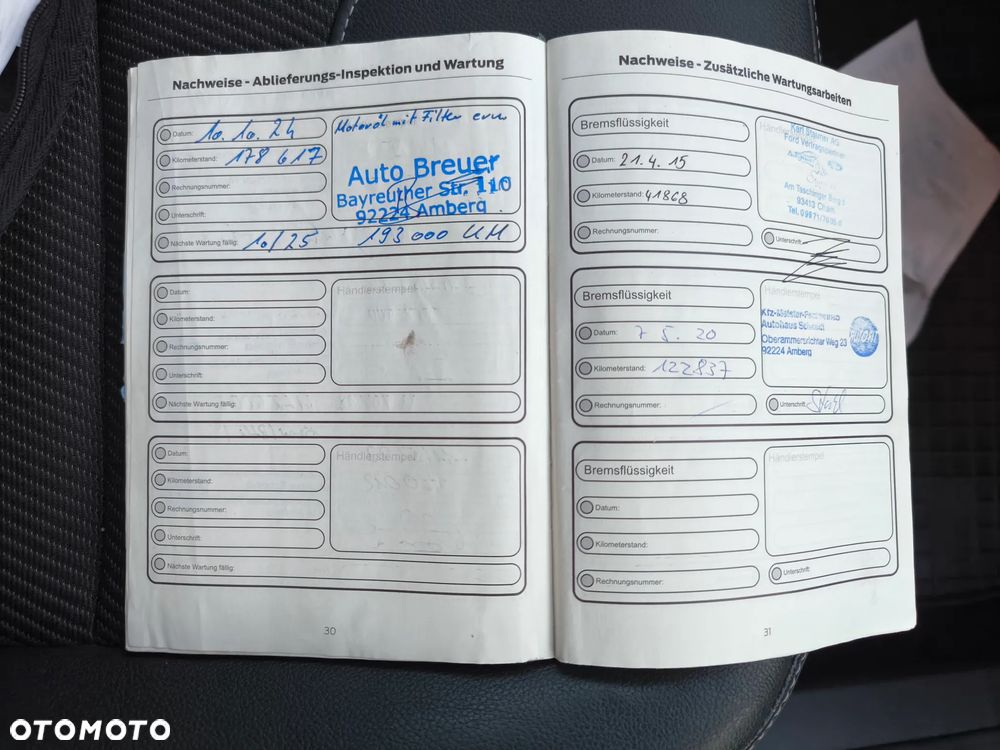 Nachweise - Ablieferungs-Inspektion und Wartung
Datum: 10.10.24
Motoröl mit Filter ern
Kilometerstand: 178 617
Rechnungsnummer:
Unterschrift:
Auto Breuer
Bayreuther Str. 110
92224 Amberg
Nächste Wartung fällig: 10/25 193 000 KM
Datum:
Händlerstempel
Kilometerstand:
Rechnungsnummer:
Unterschrift:
Nächste Wartung fällig:
Datum:
Händlerstempel
Kilometerstand:
Rechnungsnummer:
Unterschrift:
Nächste Wartung fällig:
30
Nachweise - Zusätzliche Wartungsarbeiten
Bremsflüssigkeit
Datum: 21.4.15
Kilometerstand: 41868
Rechnungsnummer:
Karl
AG
Ford Vertragspartner
93413 Cham
Unterschrift:
Bremsflüssigkeit
Datum: 7 5. 20
Kilometerstand: 122837
Rechnungsnummer:
Händlerstempel
Autohaus
Oberammersrichter Weg 23
92224 Amberg
Unterschrift:
Bremsflüssigkeit
Datum:
Kilometerstand:
Rechnungsnummer:
Händlerstempel
Unterschrift:
31
OTOMOTO